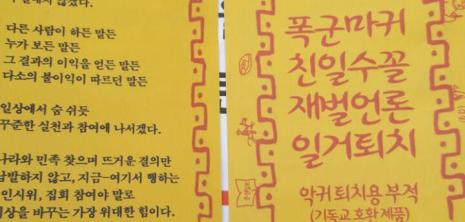 다른 사람이 하든 말든
누가 보든 말든
그 결과의 이익을 얻든 말든
다소의 불이익이 따르던 말든
일상에서 숨 쉬듯
꾸준한 실천과 참여에 나서겠다.
나라와 민족 찾으며 뜨거운 결의만
남발하지 않고, 지금-여기서 행하는
인시위, 집회 참여야 말로
세상을 바꾸는 가장 위대한 힘이다.
폭군마귀
친일수꼴
재벌언론
일거퇴치
악귀퇴치용 부적
(기독교 호환 제품)